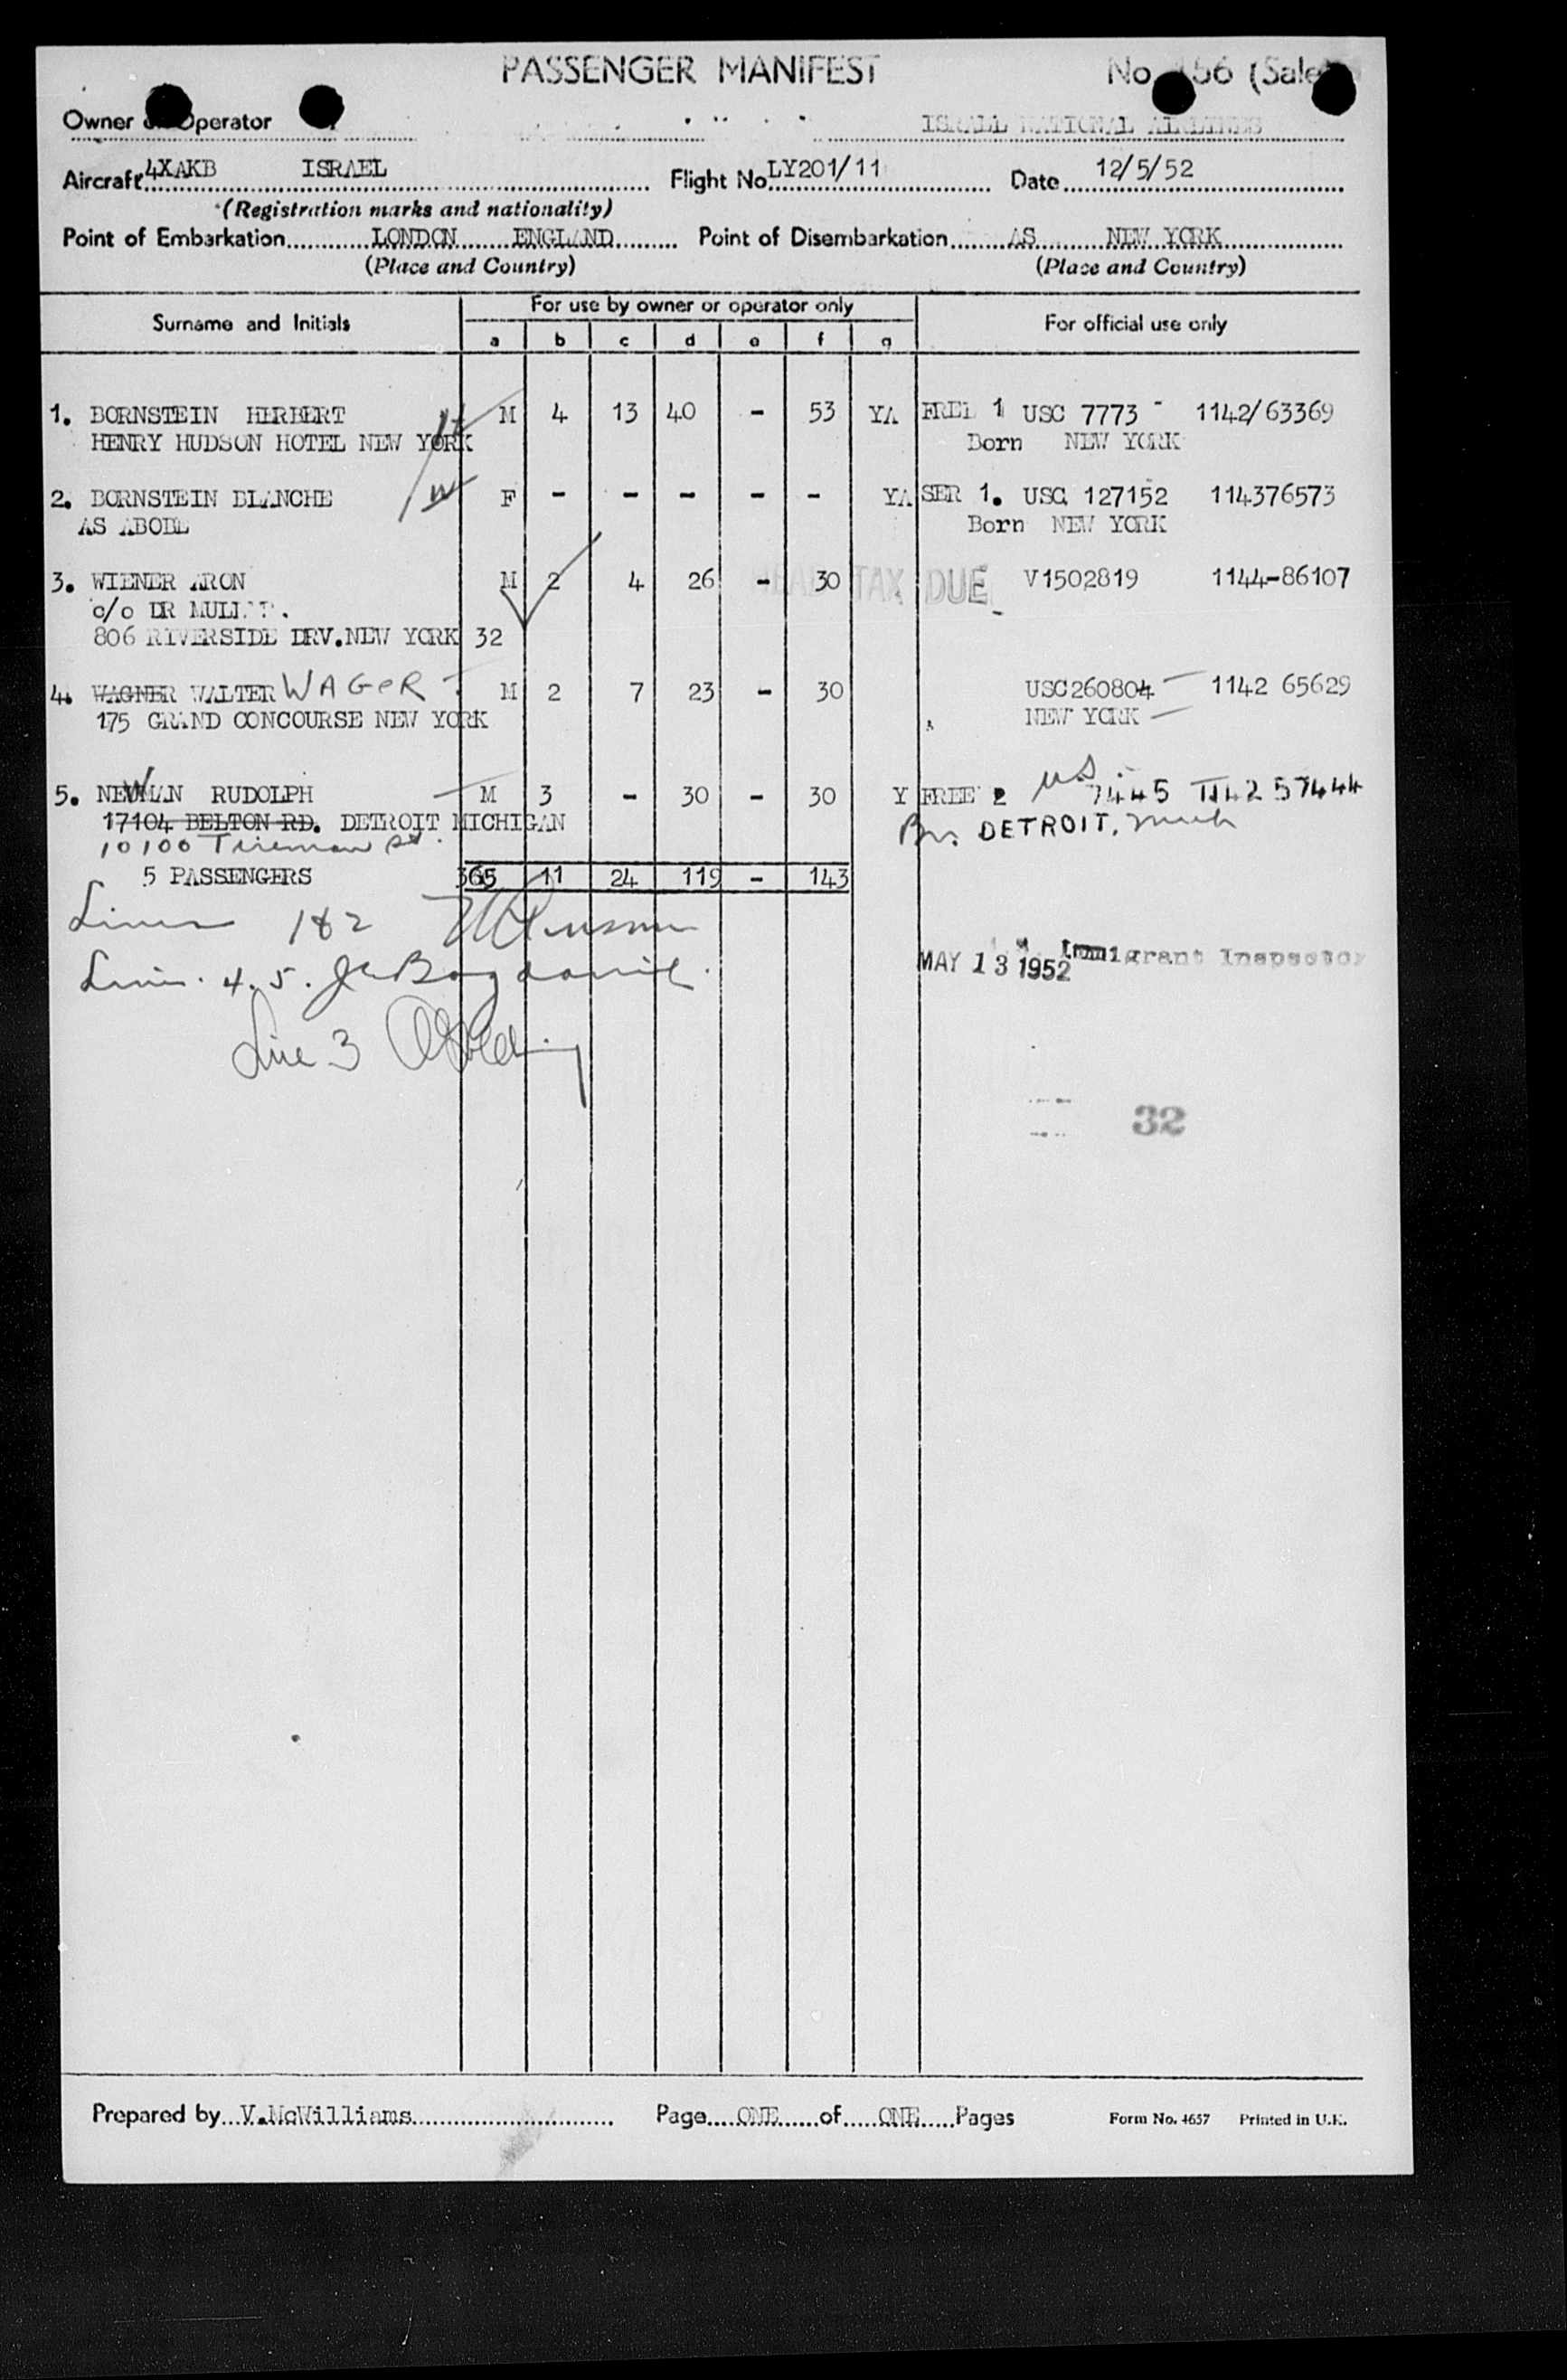 PASSENGER MANIFEST No. 156 (Sale
Owner or Operator ISRAEL NATIONAL AIRLINES
Aircraft 4XAKB ISRAEL Flight No. LY201/11 Date 12/5/52
(Registration marks and nationality)
Point of Embarkation LONDON ENGLAND Point of Disembarkation AS NEW YORK
(Place and Country) (Place and Country)
Surname and Initials For use by owner or operator only For official use only
a b c d e f g
1. BORNSTEIN HERBERT M 4 13 40 - 53 YA FREE 1 USC 7773 - 1142/63369
HENRY HUDSON HOTEL NEW YORK Born NEW YORK
2. BORNSTEIN BLANCHE W F - - - - - YA SER 1. USC 127152 114376573
AS ABOBE Born NEW YORK
3. WIENER ARON M 2 4 26 - 30 HEAD TAX DUE V1502819 1144-86107
c/o DR
806 RIVERSIDE DRV.NEW YORK 32
4. WAGNER WALTER WAGER M 2 7 23 - 30 USC260804 1142 65629
175 GRAND CONCOURSE NEW YORK NEW YORK
5. NEWMAN RUDOLPH M 3 - 30 - 30 Y FREE 2 US 7445 1142 57444
17104 BELTON RD. DETROIT MICHIGAN Bn. DETROIT, Mich
10100 Tireman
5 PASSENGERS 365 11 24 119 - 143
Lines 1 & 2
Lin. 4. 5.
MAY 13 1952 Immigrant Inspector
Line 3
32
Prepared by V.McWilliams Page ONE of ONE Pages Form No. 4657 Printed in U.K.